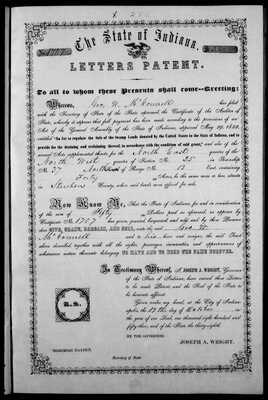 The State of Indiana.
LETTERS PATENT.
To all to whom these Presents shall come—Greeting:
Whereas, Geo. W. McConnell has filed
with the Secretary of State of the State aforesaid the Certificate of the Auditor of
State, whereby it appears that full payment has been made according to the provisions of an
Act of the General Assembly of the State of Indiana, approved May 29, 1852,
entitled "An Act to regulate the Sale of the Swamp Lands donated by the United States to the State of Indiana, and to
provide for the draining and reclaiming thereof, in accordance with the condition of said grant,"
North East quarter of the
North West quarter of Section No. 35 in Township
No. 37 North of Range No. East containing
Forty Acres,
in Steuben County,
Now Know Ye, That the State of Indiana, for and in consideration
of the sum of Fifty Dollars paid as aforesaid
Certificate No.
GIVE, GRANT, BARGAIN, AND SELL, unto the said Geo. W.
McConnell and to his heirs and assigns, the said Tract
above described, together with all the rights, privileges, immunities and appurtenances of
whatsoever nature thereunto belonging TO HAVE AND TO HOLD THE SAME FOREVER.
In Testimony Whereof, I, JOSEPH A. WRIGHT, Governor
of the State of Indiana, have caused these Letters
to be made Patent, and the Seal of the State to
be hereunto affixed.
Given under my hand, at the City of Indianapolis,
the day of October in
the year of our Lord, one thousand eight hundred and
fifty-three, and of the State the thirty-eighth.
BY THE GOVERNOR:
JOSEPH A. WRIGHT.
Secretary of State.